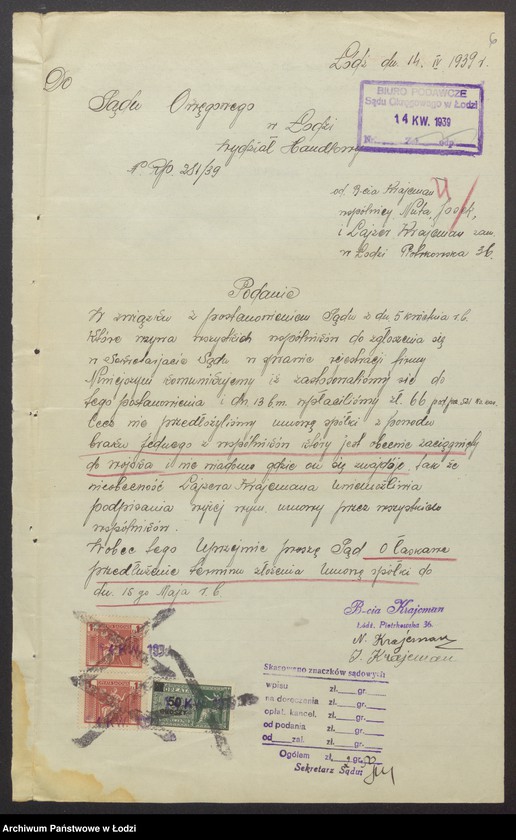 6
Łódź dn. 14. IV 1939 r.
Do
Sądu Okręgowego
w Łodzi
Wydział Handlowy
BIURO PODAWCZE
Sądu Okręgowego w Łodzi
14 KW. 1939
Nr.
281/39
od B-cia Krajcman
wspólnicy Nuta, Josek,
i Lajzer Krajcman zam.
w Łodzi Piotrkowska 36.
Podanie
W związku z postanowieniem Sądu z dn 5 kwietnia r.b.
które wzywa wszystkich wspólników do zgłoszenia się
w Sekretarjacie Sądu w sprawie rejestracji firmy
Niniejszym komunikujemy iż zastosowaliśmy się do
tego postanowienia i dn. 13 b.m. wpłaciliśmy zł. 66
Lecz nie przedłożyliśmy umowę spółki z powodu
braku jednego z wspólników który jest obecnie zaciągnięty
do wojska i nie wiadomo gdzie on się znajduje, tak że
nieobecność Lajzera Krajcmana uniemożliwia
podpisania wyżej wym. umowy przez wszystkich
wspólników.
Wobec tego Uprzejmie proszę Sąd o łaskawe
przedłużenie terminu złożenia Umowę spółki do
dn. 15 go Maja r.b.
B-cia Krajcman
Łódź, Piotrkowska 36.
N. Krajcman
J. Krajcman
KW. 1939
50
Skasowano znaczków sądowych
wpisu zł. gr.
na doręczenia zł. gr.
opłat. kancel. zł. gr.
od podania zł. gr.
od zał. zł. gr.
Ogółem zł. gr.
Sekretarz Sądu
Archiwum Państwowe w Łodzi